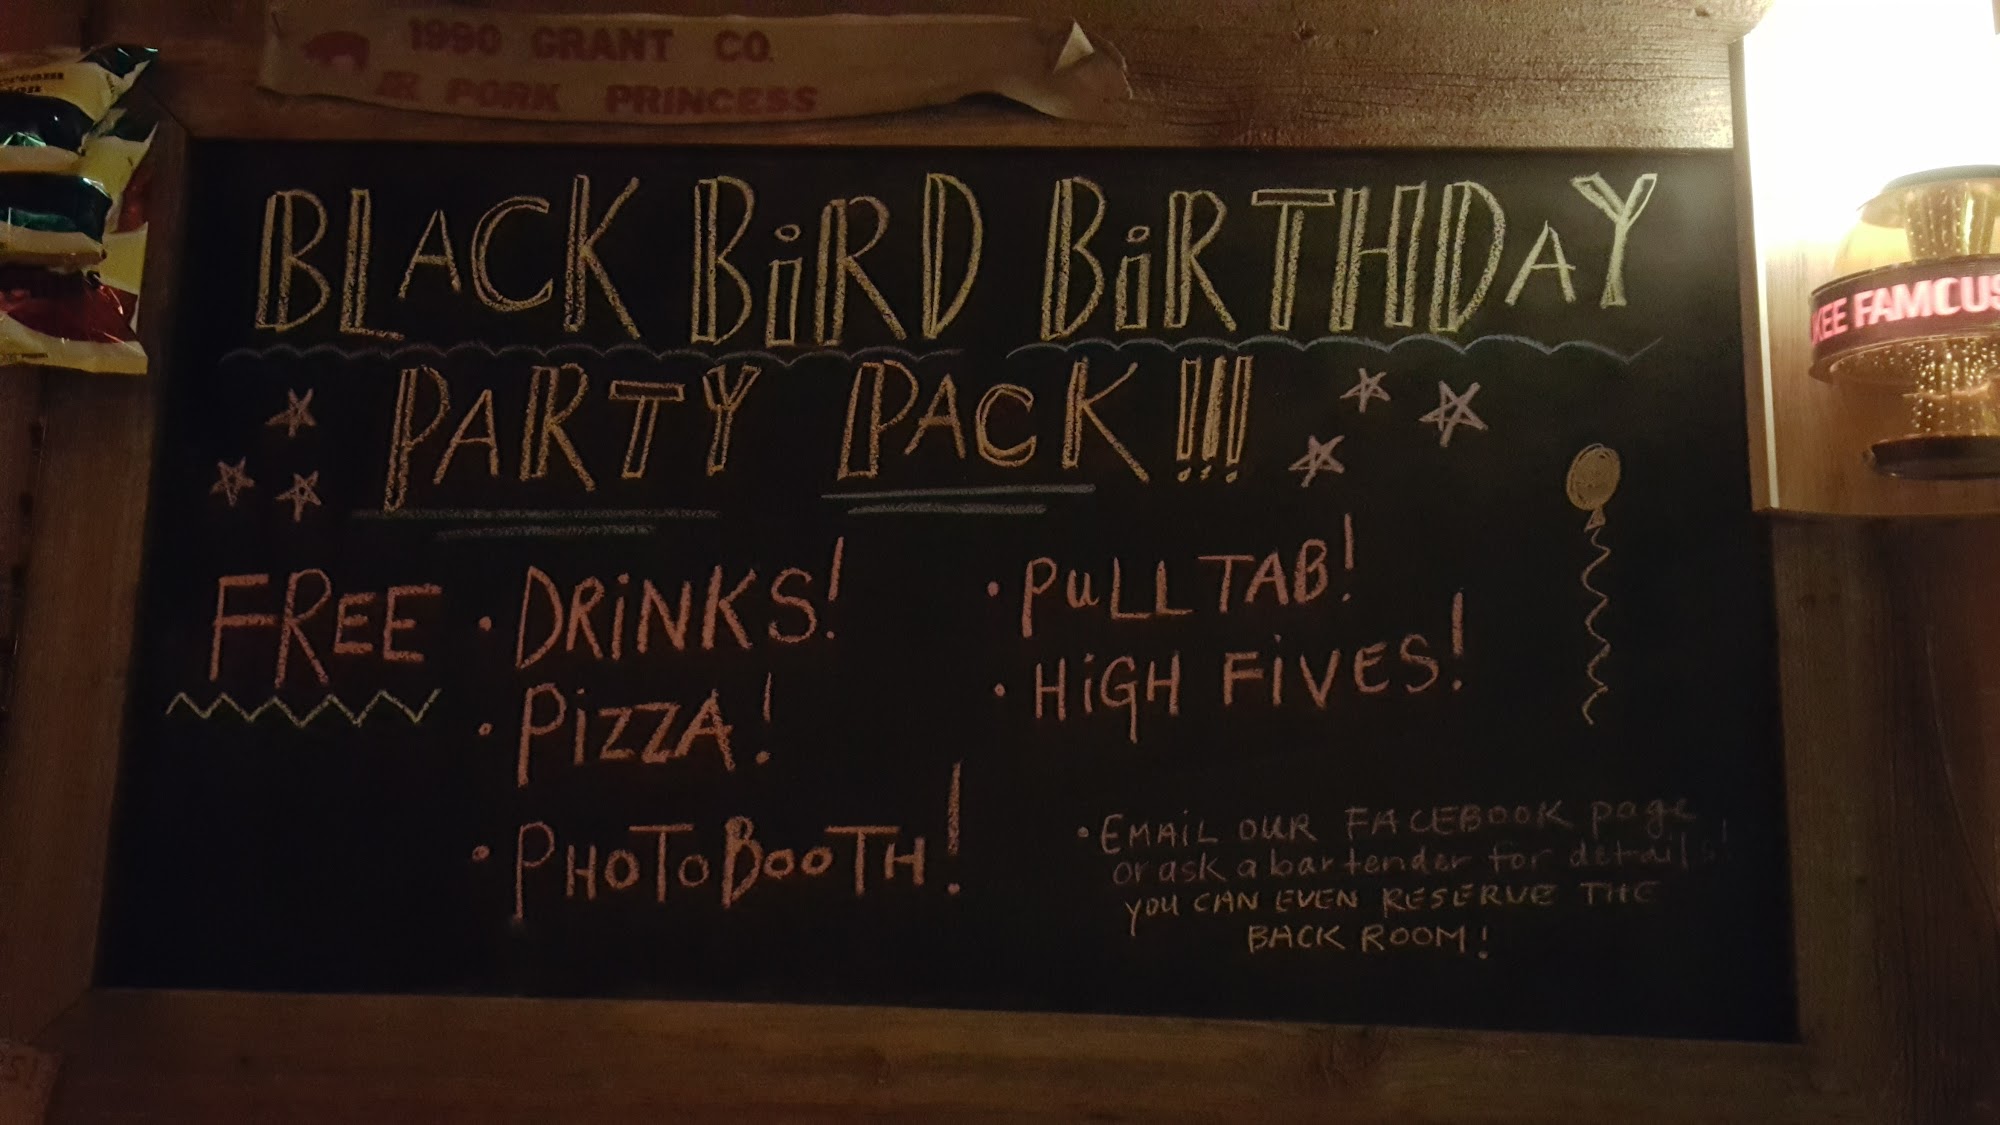 1990 GRANT CO.
JR PORK PRINCESS
BLACK BiRD BiRTHDAY
PARTY PACK!!!
FREE
• DRiNKS!
• PiZZA!
• PHOTOBOOTH!
• PULL TAB!
• HiGH FiVES!
• EMAiL OUR FACEBOOK page
or ask a bartender for details!
YOU CAN EVEN RESERVE THE
BACK ROOM!
KEE FAMOUS